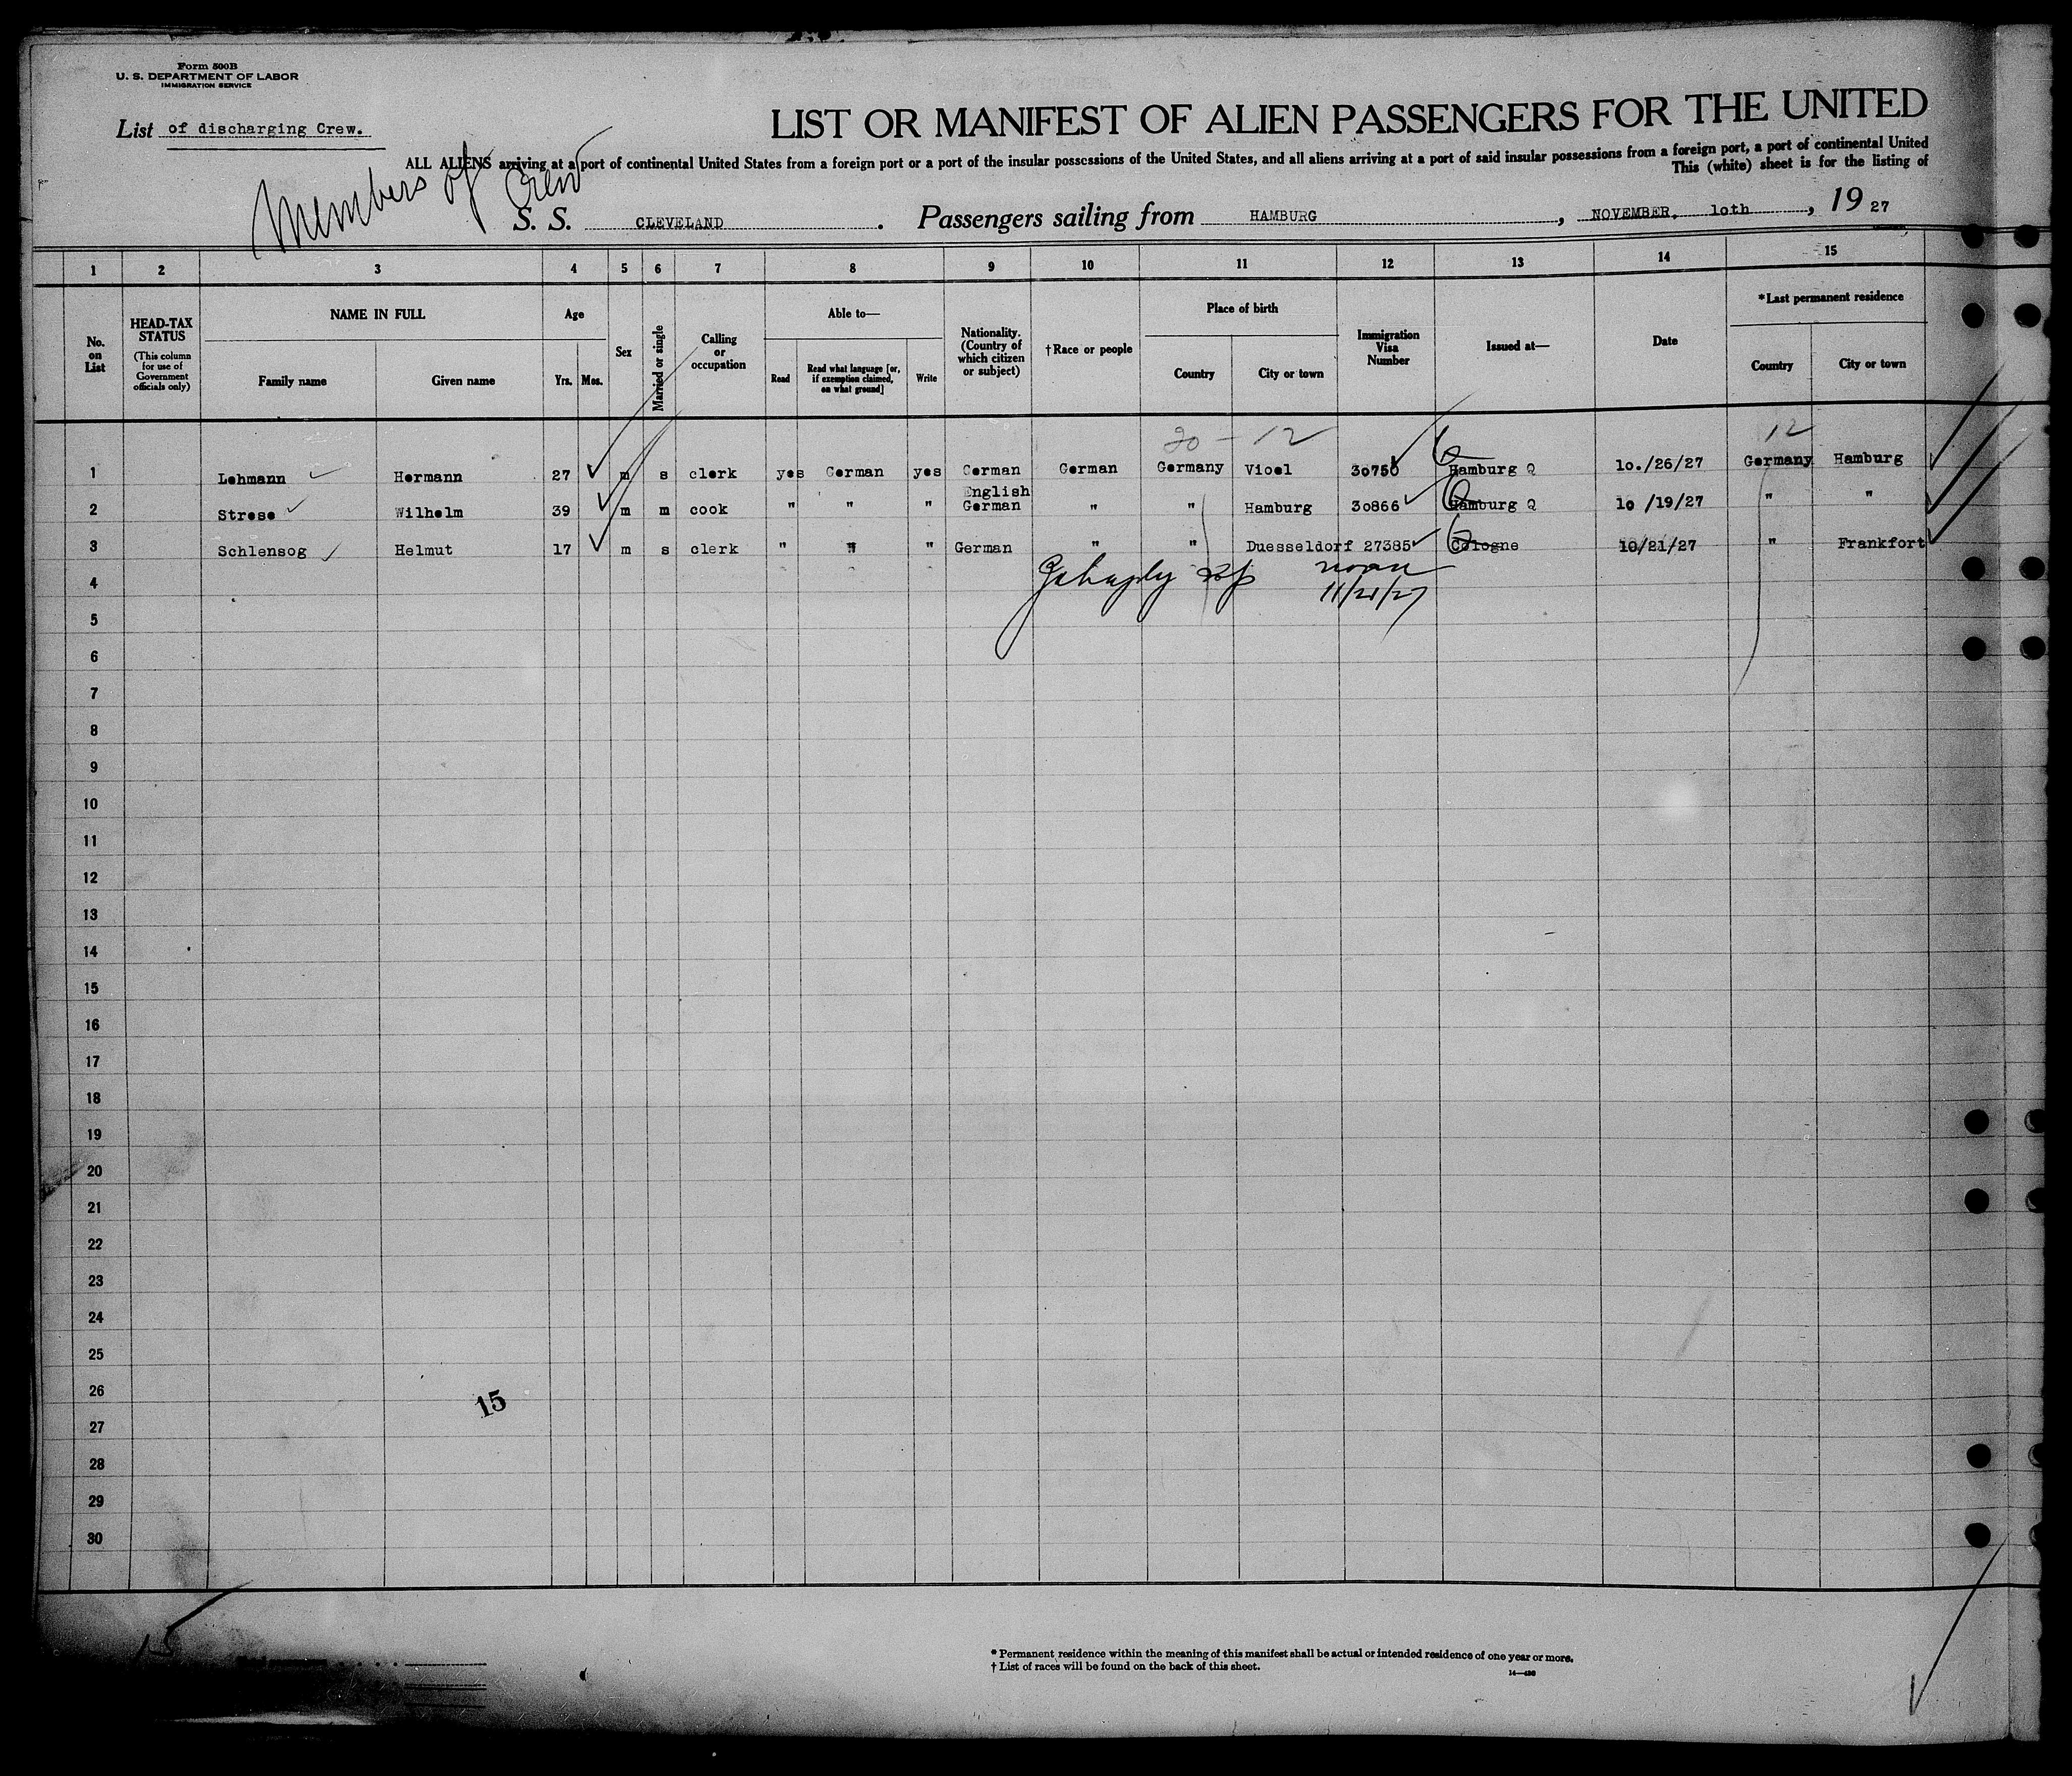 Form 500B
U. S. DEPARTMENT OF LABOR
IMMIGRATION SERVICE
List of discharging Crew.
LIST OR MANIFEST OF ALIEN PASSENGERS FOR THE UNITED
ALL ALIENS arriving at a port of continental United States from a foreign port or a port of the insular possessions of the United States, and all aliens arriving at a port of said insular possessions from a foreign port, a port of continental United
This (white) sheet is for the listing of
Members of Crew
S. S. CLEVELAND. Passengers sailing from HAMBURG, NOVEMBER. 1oth, 19 27
1 2 3 4 5 6 7 8 9 10 11 12 13 14 15
No. on List
HEAD-TAX STATUS (This column for use of Government officials only)
NAME IN FULL
Family name Given name
Age
Yrs. Mos.
Sex
Married or single
Calling or occupation
Able to—
Read Read what language [or, if exemption claimed, on what ground] Write
Nationality. (Country of which citizen or subject)
†Race or people
Place of birth
Country City or town
Immigration Visa Number
Issued at—
Date
*Last permanent residence
Country City or town
20 - 12 12
1 Lehmann Hermann 27 m s clerk yes German yes German German Germany Vioel 30750 Hamburg Q 10./26/27 Germany Hamburg
English
2 Strese Wilhelm 39 m m cook " " " German " " Hamburg 30866 Hamburg Q 10 /19/27 " "
3 Schlensog Helmut 17 m s clerk " " " German " " Duesseldorf 27385 Cologne 10/21/27 " Frankfort
11/21/27
4
5
6
7
8
9
10
11
12
13
14
15
16
17
18
19
20
21
22
23
24
25
26
15
27
28
29
30
15
* Permanent residence within the meaning of this manifest shall be actual or intended residence of one year or more.
† List of races will be found on the back of this sheet.